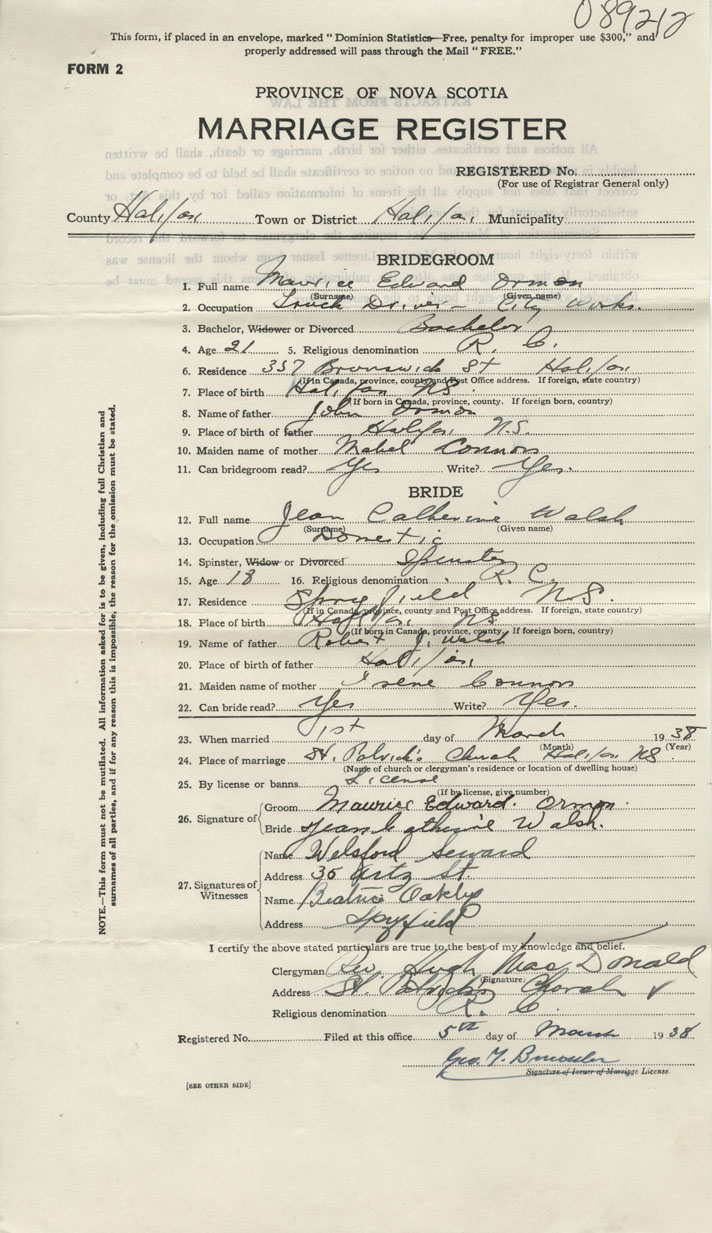 089212
This form, if placed in an envelope, marked "Dominion Statistics—Free, penalty for improper use $300," and
properly addressed will pass through the Mail "FREE."
FORM 2
PROVINCE OF NOVA SCOTIA
MARRIAGE REGISTER
REGISTERED No.
(For use of Registrar General only)
County Halifax Town or District Halifax Municipality
BRIDEGROOM
1. Full name Maurice Edward Ormon
(Surname) (Given name)
2. Occupation Truck Driver - City Works.
3. Bachelor, Widower or Divorced Bachelor
4. Age 21 5. Religious denomination R. C.
6. Residence 337 Brunswick St Halifax
(If in Canada, province, county and Post Office address. If foreign, state country)
7. Place of birth Halifax NS
(If born in Canada, province, county. If foreign born, country)
8. Name of father John Ormon
9. Place of birth of father Halifax, N.S.
10. Maiden name of mother Mabel Connors
11. Can bridegroom read? Yes Write? Yes.
BRIDE
12. Full name Jean Catherine Walsh
(Surname) (Given name)
13. Occupation Domestic
14. Spinster, Widow or Divorced Spinster
15. Age 18 16. Religious denomination R. C.
17. Residence Spryfield N.S.
(If in Canada, province, county and Post Office address. If foreign, state country)
18. Place of birth Halifax NS
(If born in Canada, province, county. If foreign born, country)
19. Name of father Robert J. Walsh
20. Place of birth of father Halifax
21. Maiden name of mother Irene Connors
22. Can bride read? Yes Write? Yes.
23. When married 1st day of March 1938
(Month) (Year)
24. Place of marriage St. Patrick's Church Halifax NS
(Name of church or clergyman's residence or location of dwelling house)
25. By license or banns License
(If by license, give number)
26. Signature of
Groom Maurice Edward Ormon
Bride Jean Catherine Walsh.
27. Signatures of Witnesses
Name Welsford Seward
Address 36 Artz St.
Name Beatrice Oakley
Address Spryfield
I certify the above stated particulars are true to the best of my knowledge and belief.
Clergyman Rev. Hugh MacDonald
(Signature)
Address St. Patricks Church
Religious denomination R. C.
Registered No. Filed at this office 5th day of March 1938
Geo. T.
Signature of Issuer of Marriage License
[SEE OTHER SIDE]
NOTE.—This form must not be mutilated. All information asked for is to be given, including full Christian and
surnames of all parties, and if for any reason this is impossible, the reason for the omission must be stated.